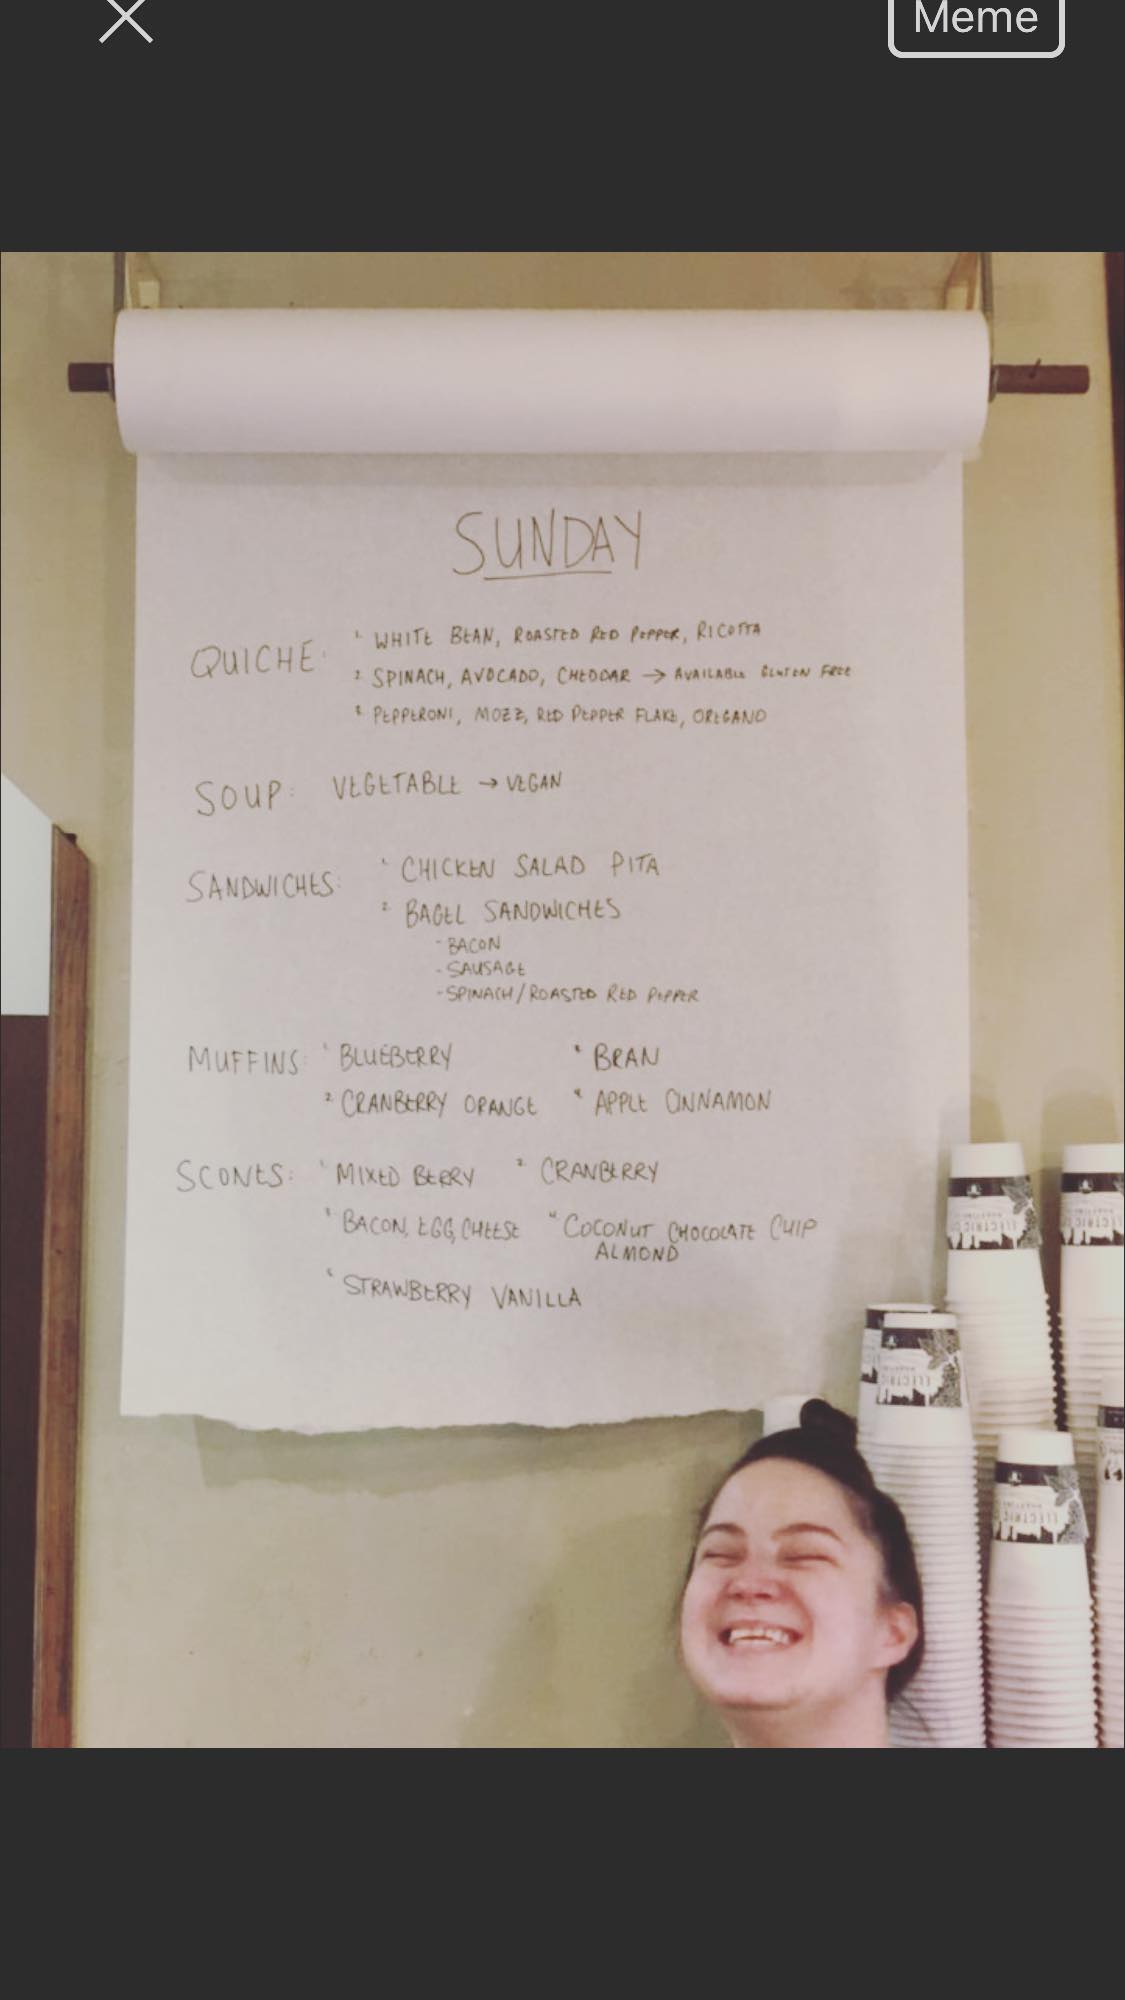 Meme
SUNDAY
QUICHE: 1. WHITE BEAN, ROASTED RED PEPPER, RICOTTA
2. SPINACH, AVOCADO, CHEDDAR → AVAILABLE GLUTEN FREE
3. PEPPERONI, MOZZ, RED PEPPER FLAKE, OREGANO
SOUP: VEGETABLE → VEGAN
SANDWICHES: 1. CHICKEN SALAD PITA
2. BAGEL SANDWICHES
- BACON
- SAUSAGE
- SPINACH/ROASTED RED PEPPER
MUFFINS: 1. BLUEBERRY 3. BRAN
2. CRANBERRY ORANGE 4. APPLE CINNAMON
SCONES: 1. MIXED BERRY 2. CRANBERRY
3. BACON, EGG, CHEESE 4. COCONUT CHOCOLATE CHIP
ALMOND
5. STRAWBERRY VANILLA
ELECTRIC
ELECTRIC
ELECTRIC
ELECTRIC